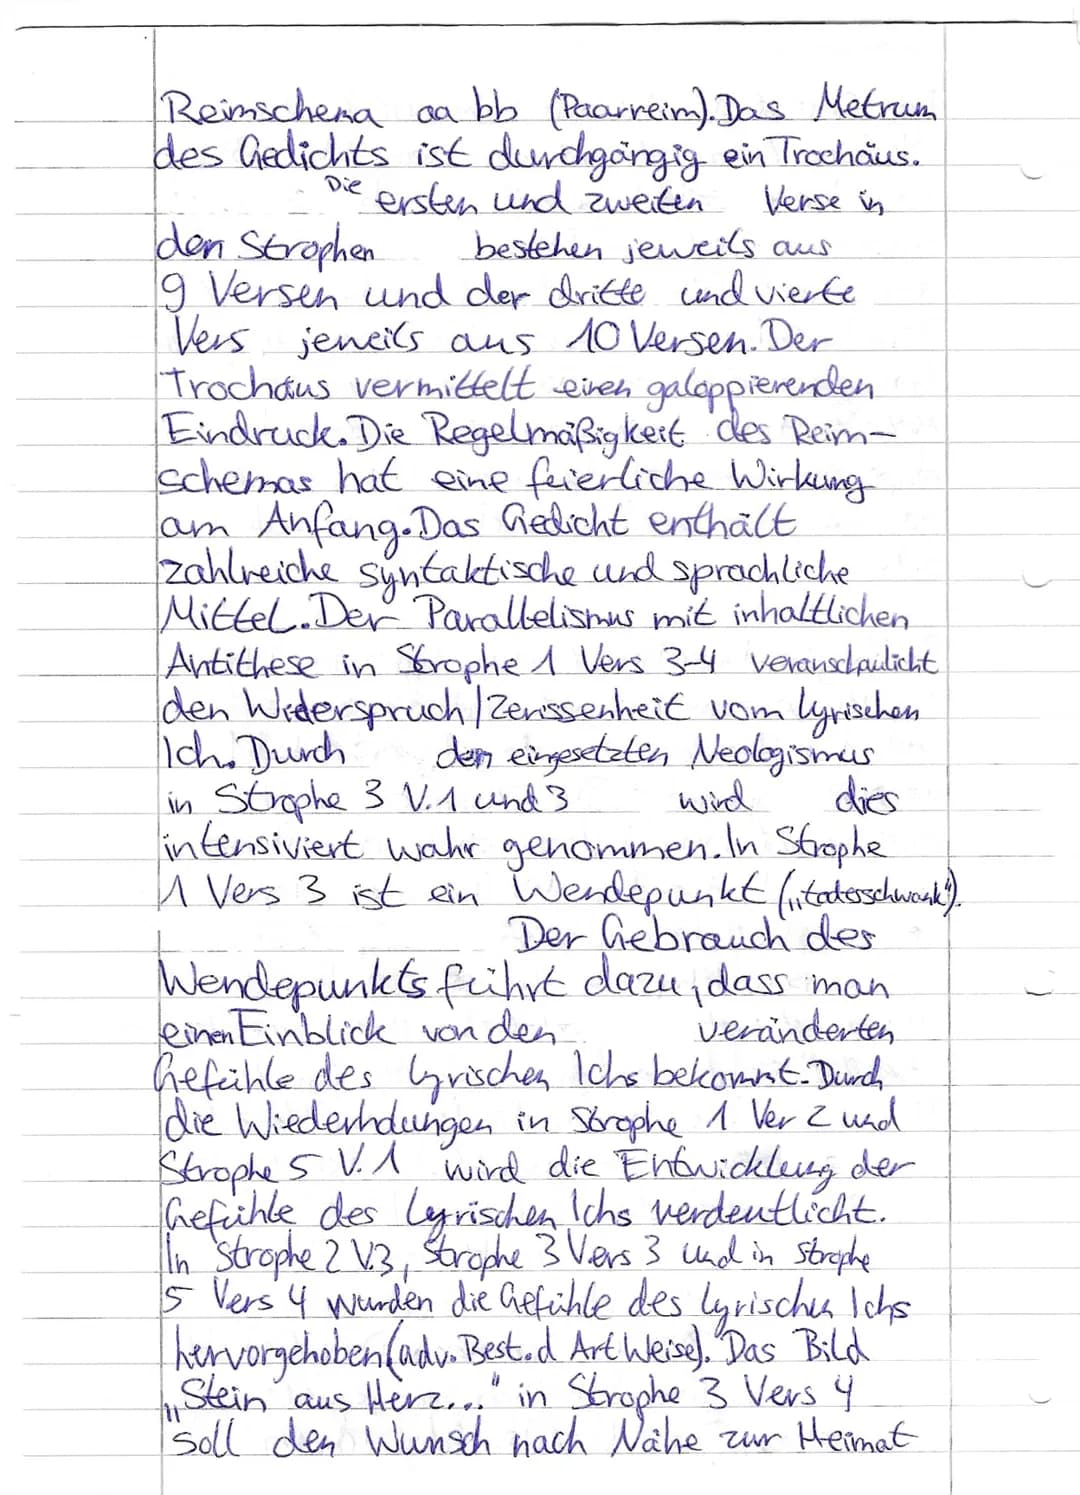 Reimschema aa bb (Paarreim). Das Metrum
des Gedichts ist durchgängig ein Trochäus.
Die ersten und zweiten Verse in
den Strophen bestehen jeweils aus
9 Versen und der dritte und vierte
Vers jeweils aus 10 Versen. Der
Trochäus vermittelt einen galoppierenden
Eindruck. Die Regelmäßigkeit des Reim-
schemas hat eine feierliche Wirkung
am Anfang. Das Gedicht enthält
zahlreiche syntaktische und sprachliche
Mittel. Der Parallelismus mit inhaltlichen
Antithese in Strophe 1 Vers 3-4 veranschaulicht
den Widerspruch/Zerissenheit vom lyrischen
Ich. Durch den eingesetzten Neologismus
in Strophe 3 V.1 und 3 wird dies
intensiviert wahr genommen. In Strophe
1 Vers 3 ist ein Wendepunkt („todesschwank“).
Der Gebrauch des
Wendepunkts führt dazu, dass man
einen Einblick von den veränderten
Gefühle des lyrischen Ichs bekommt. Durch
die Wiederholungen in Strophe 1 Ver 2 und
Strophe 5 V.1 wird die Entwicklung der
Gefühle des lyrischen Ichs verdeutlicht.
In Strophe 2 V.3, Strophe 3 Vers 3 und in Strophe
5 Vers 4 wurden die Gefühle des lyrischen Ichs
hervorgehoben (adv. Best. d Art Weise). Das Bild
„Stein aus Herz..." in Strophe 3 Vers 4
soll den Wunsch nach Nähe zur Heimat